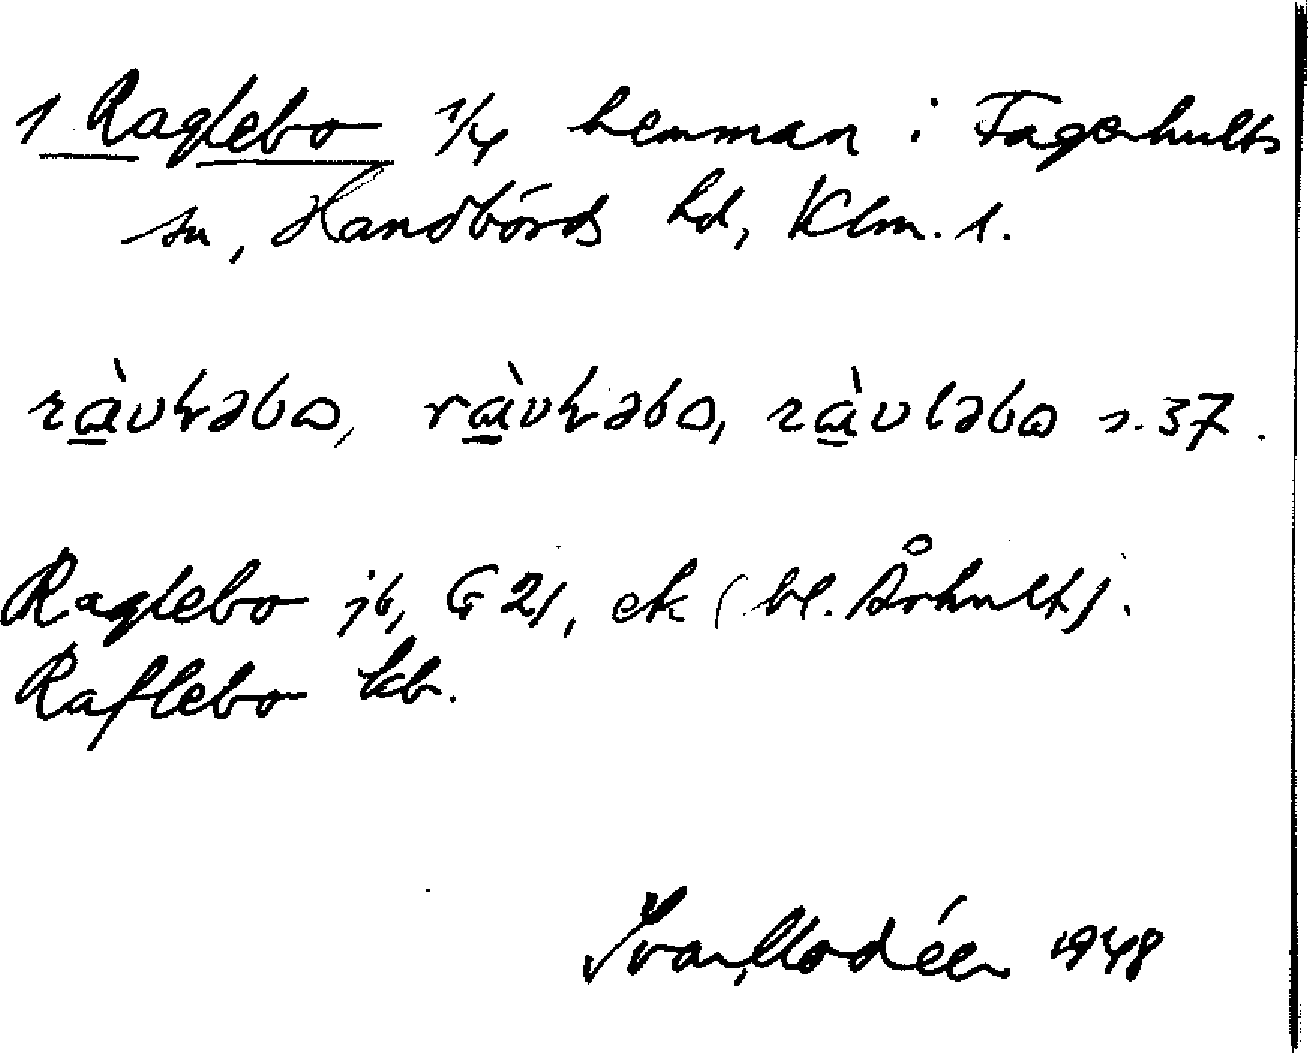 1 Raglebo 1/4 hemman i Fagerhults
sn, Handbörds hd, Klm. l.
s. 37.
Raglebo jb, G 21, ek (bl. Århult).
Raflebo kb.
Ivar Modéer 1948